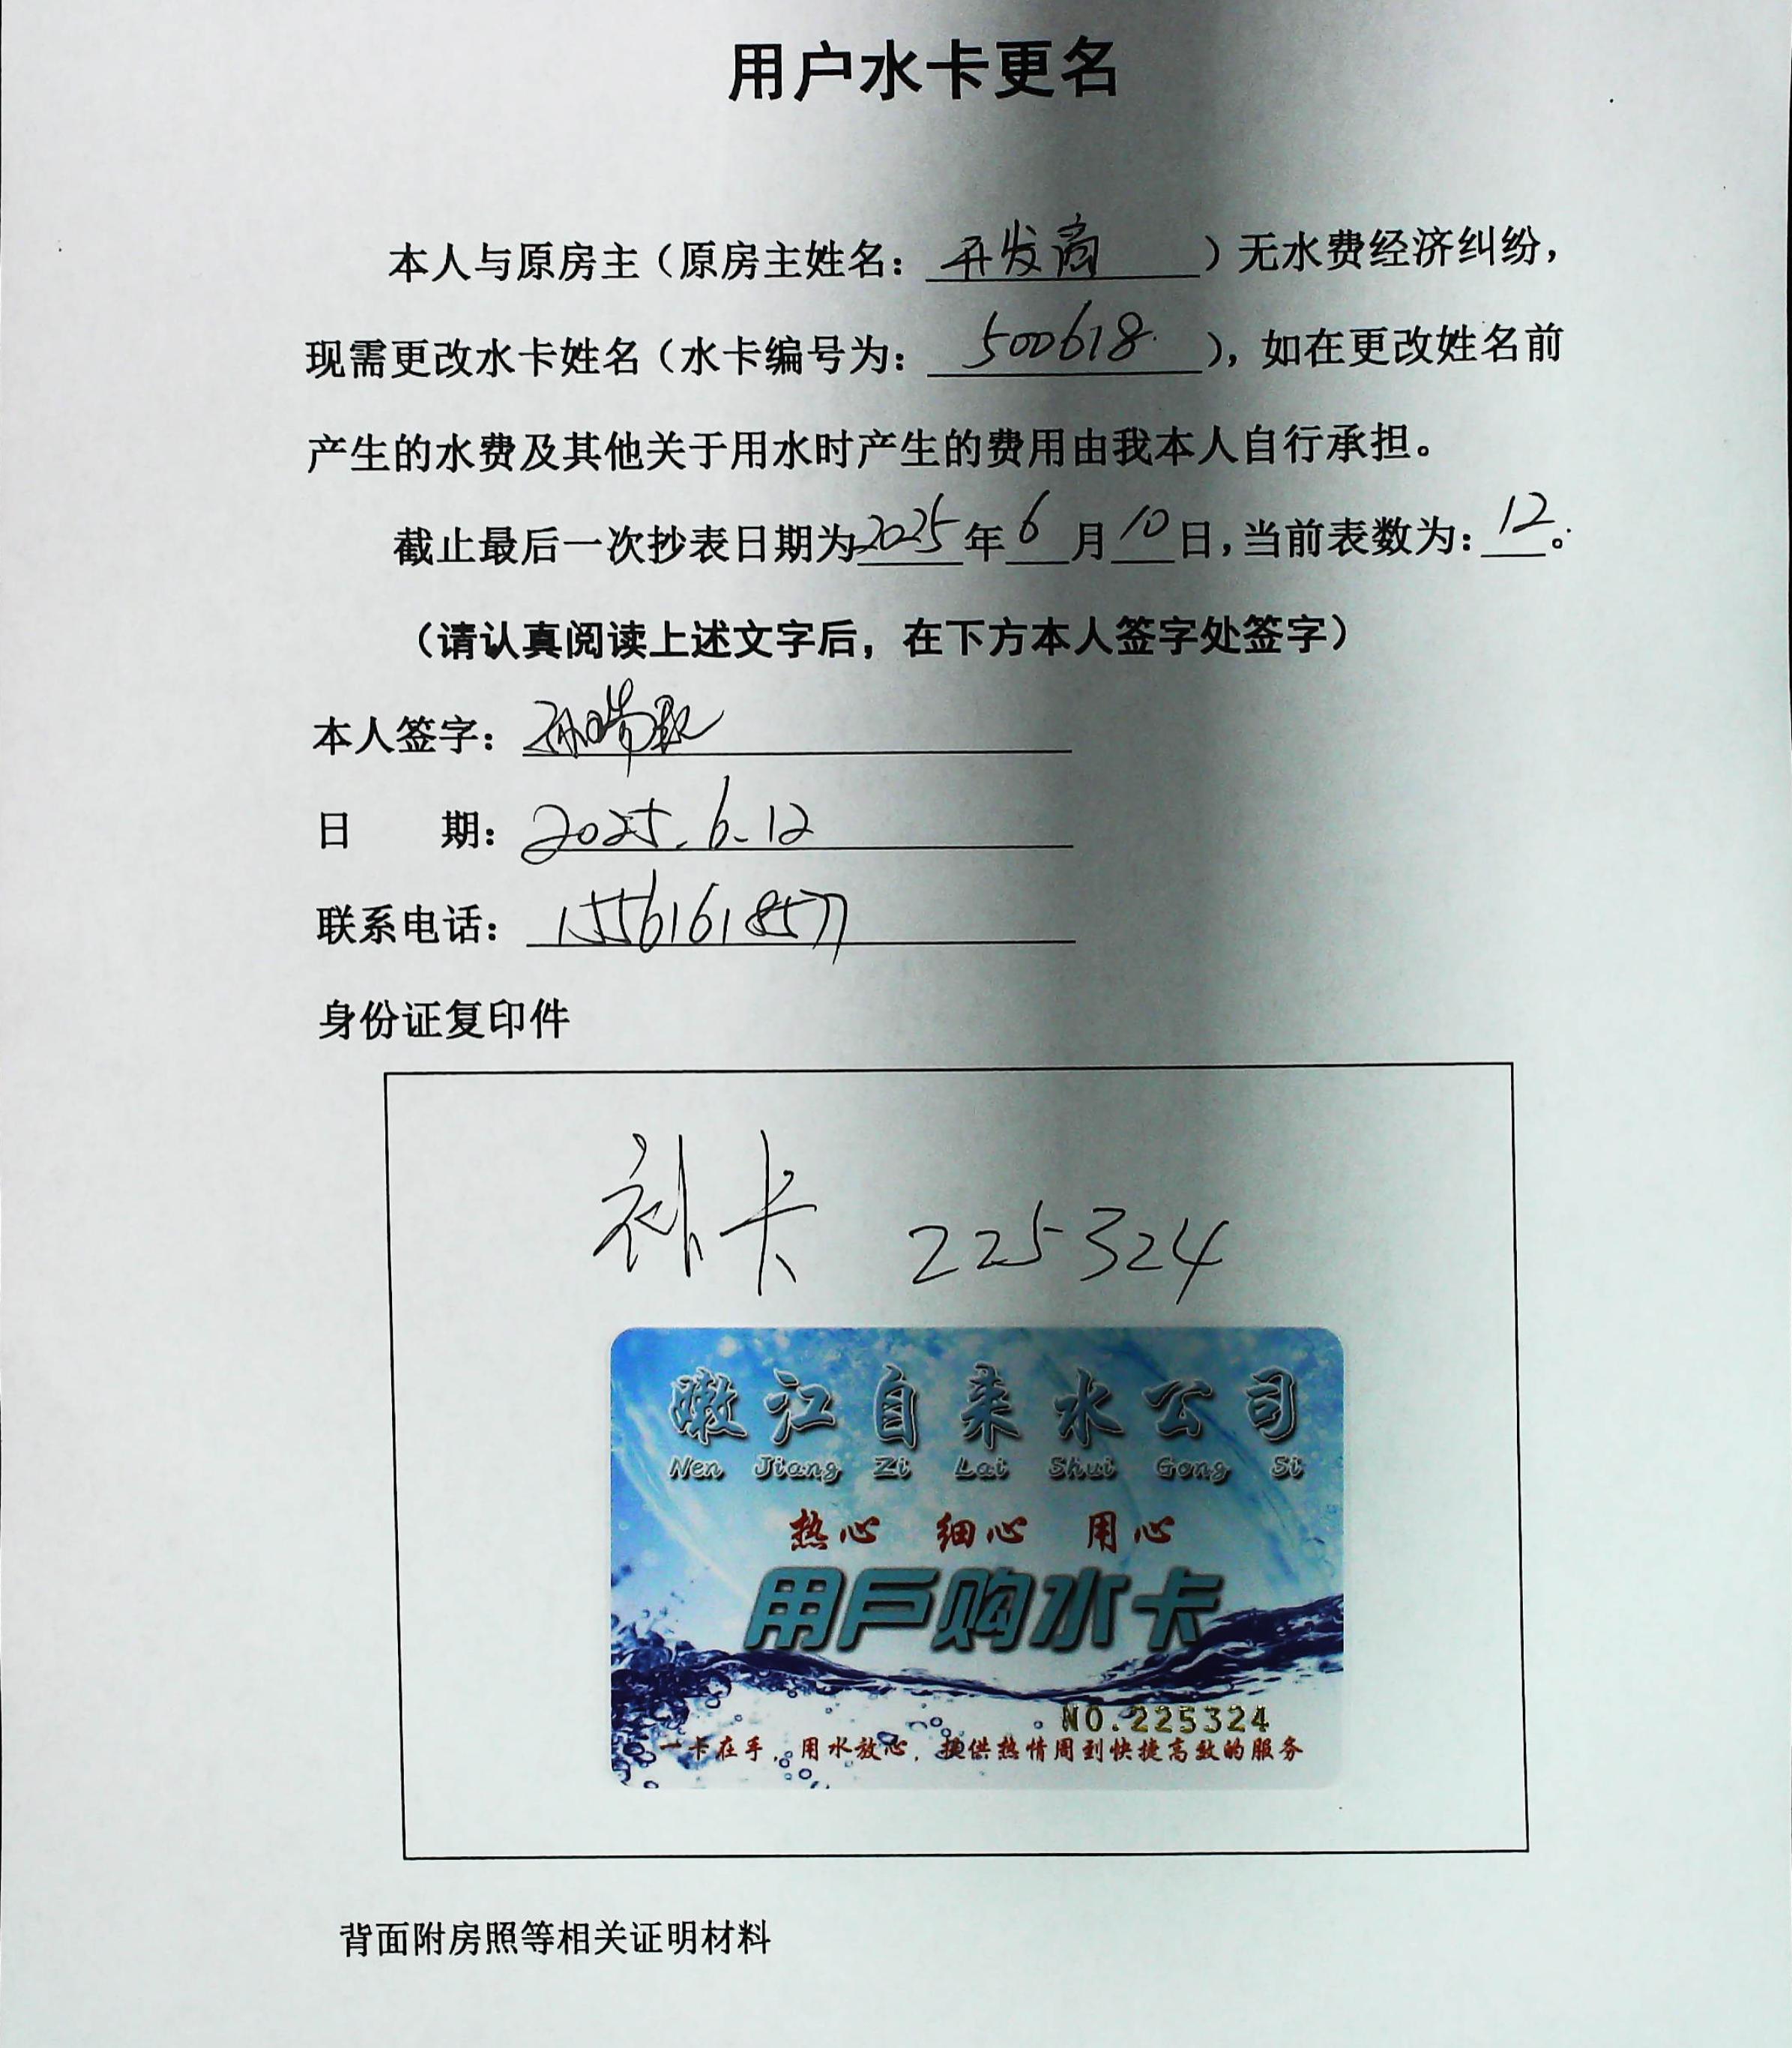 用户水卡更名
本人与原房主（原房主姓名：开发商）无水费经济纠纷，
现需更改水卡姓名（水卡编号为：500618），如在更改姓名前
产生的水费及其他关于用水时产生的费用由我本人自行承担。
截止最后一次抄表日期为2025年6月10日，当前表数为：12。
（请认真阅读上述文字后，在下方本人签字处签字）
本人签字：孙
日 期：2025.6.12
联系电话：15561618577
身份证复印件
补卡 225324
嫩江自来水公司
Nen Jiang Zi Lai Shui Gong Si
热心 细心 用心
用戶购水卡
NO.225324
一卡在手，用水放心，提供热情周到快捷高效的服务
背面附房照等相关证明材料